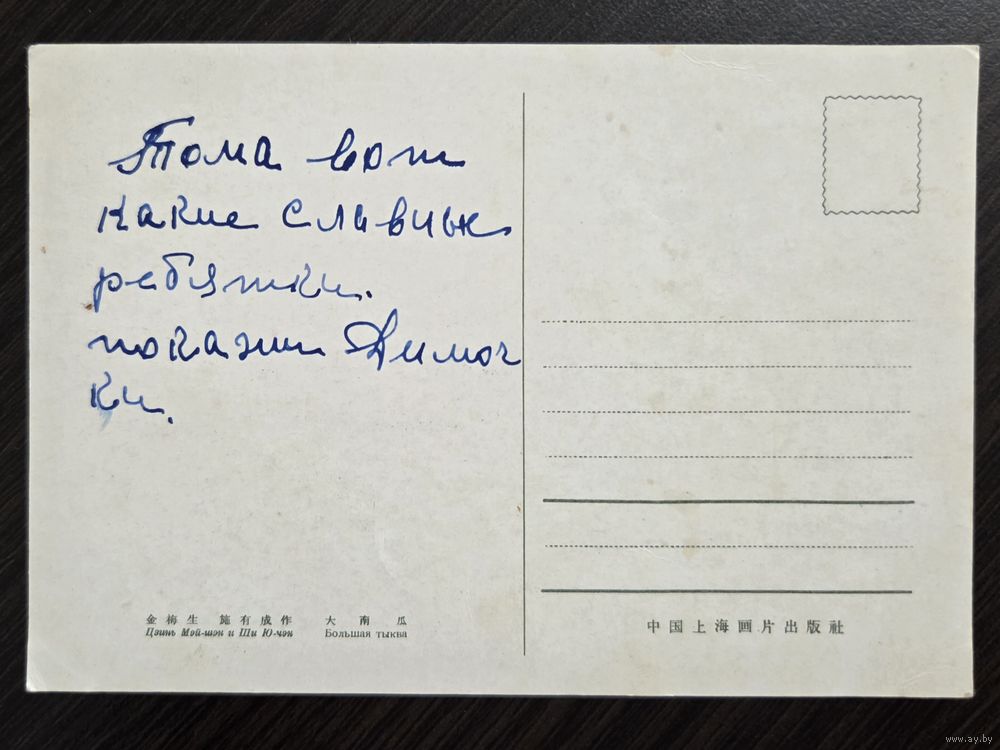 Тома вот
какие славные
ребятки.
покажи Димоч
ки.
金梅生 施有成作 大南瓜
Цзинь Мэй-шэн и Ши Ю-чэн Большая тыква
中国上海画片出版社
www.ay.by